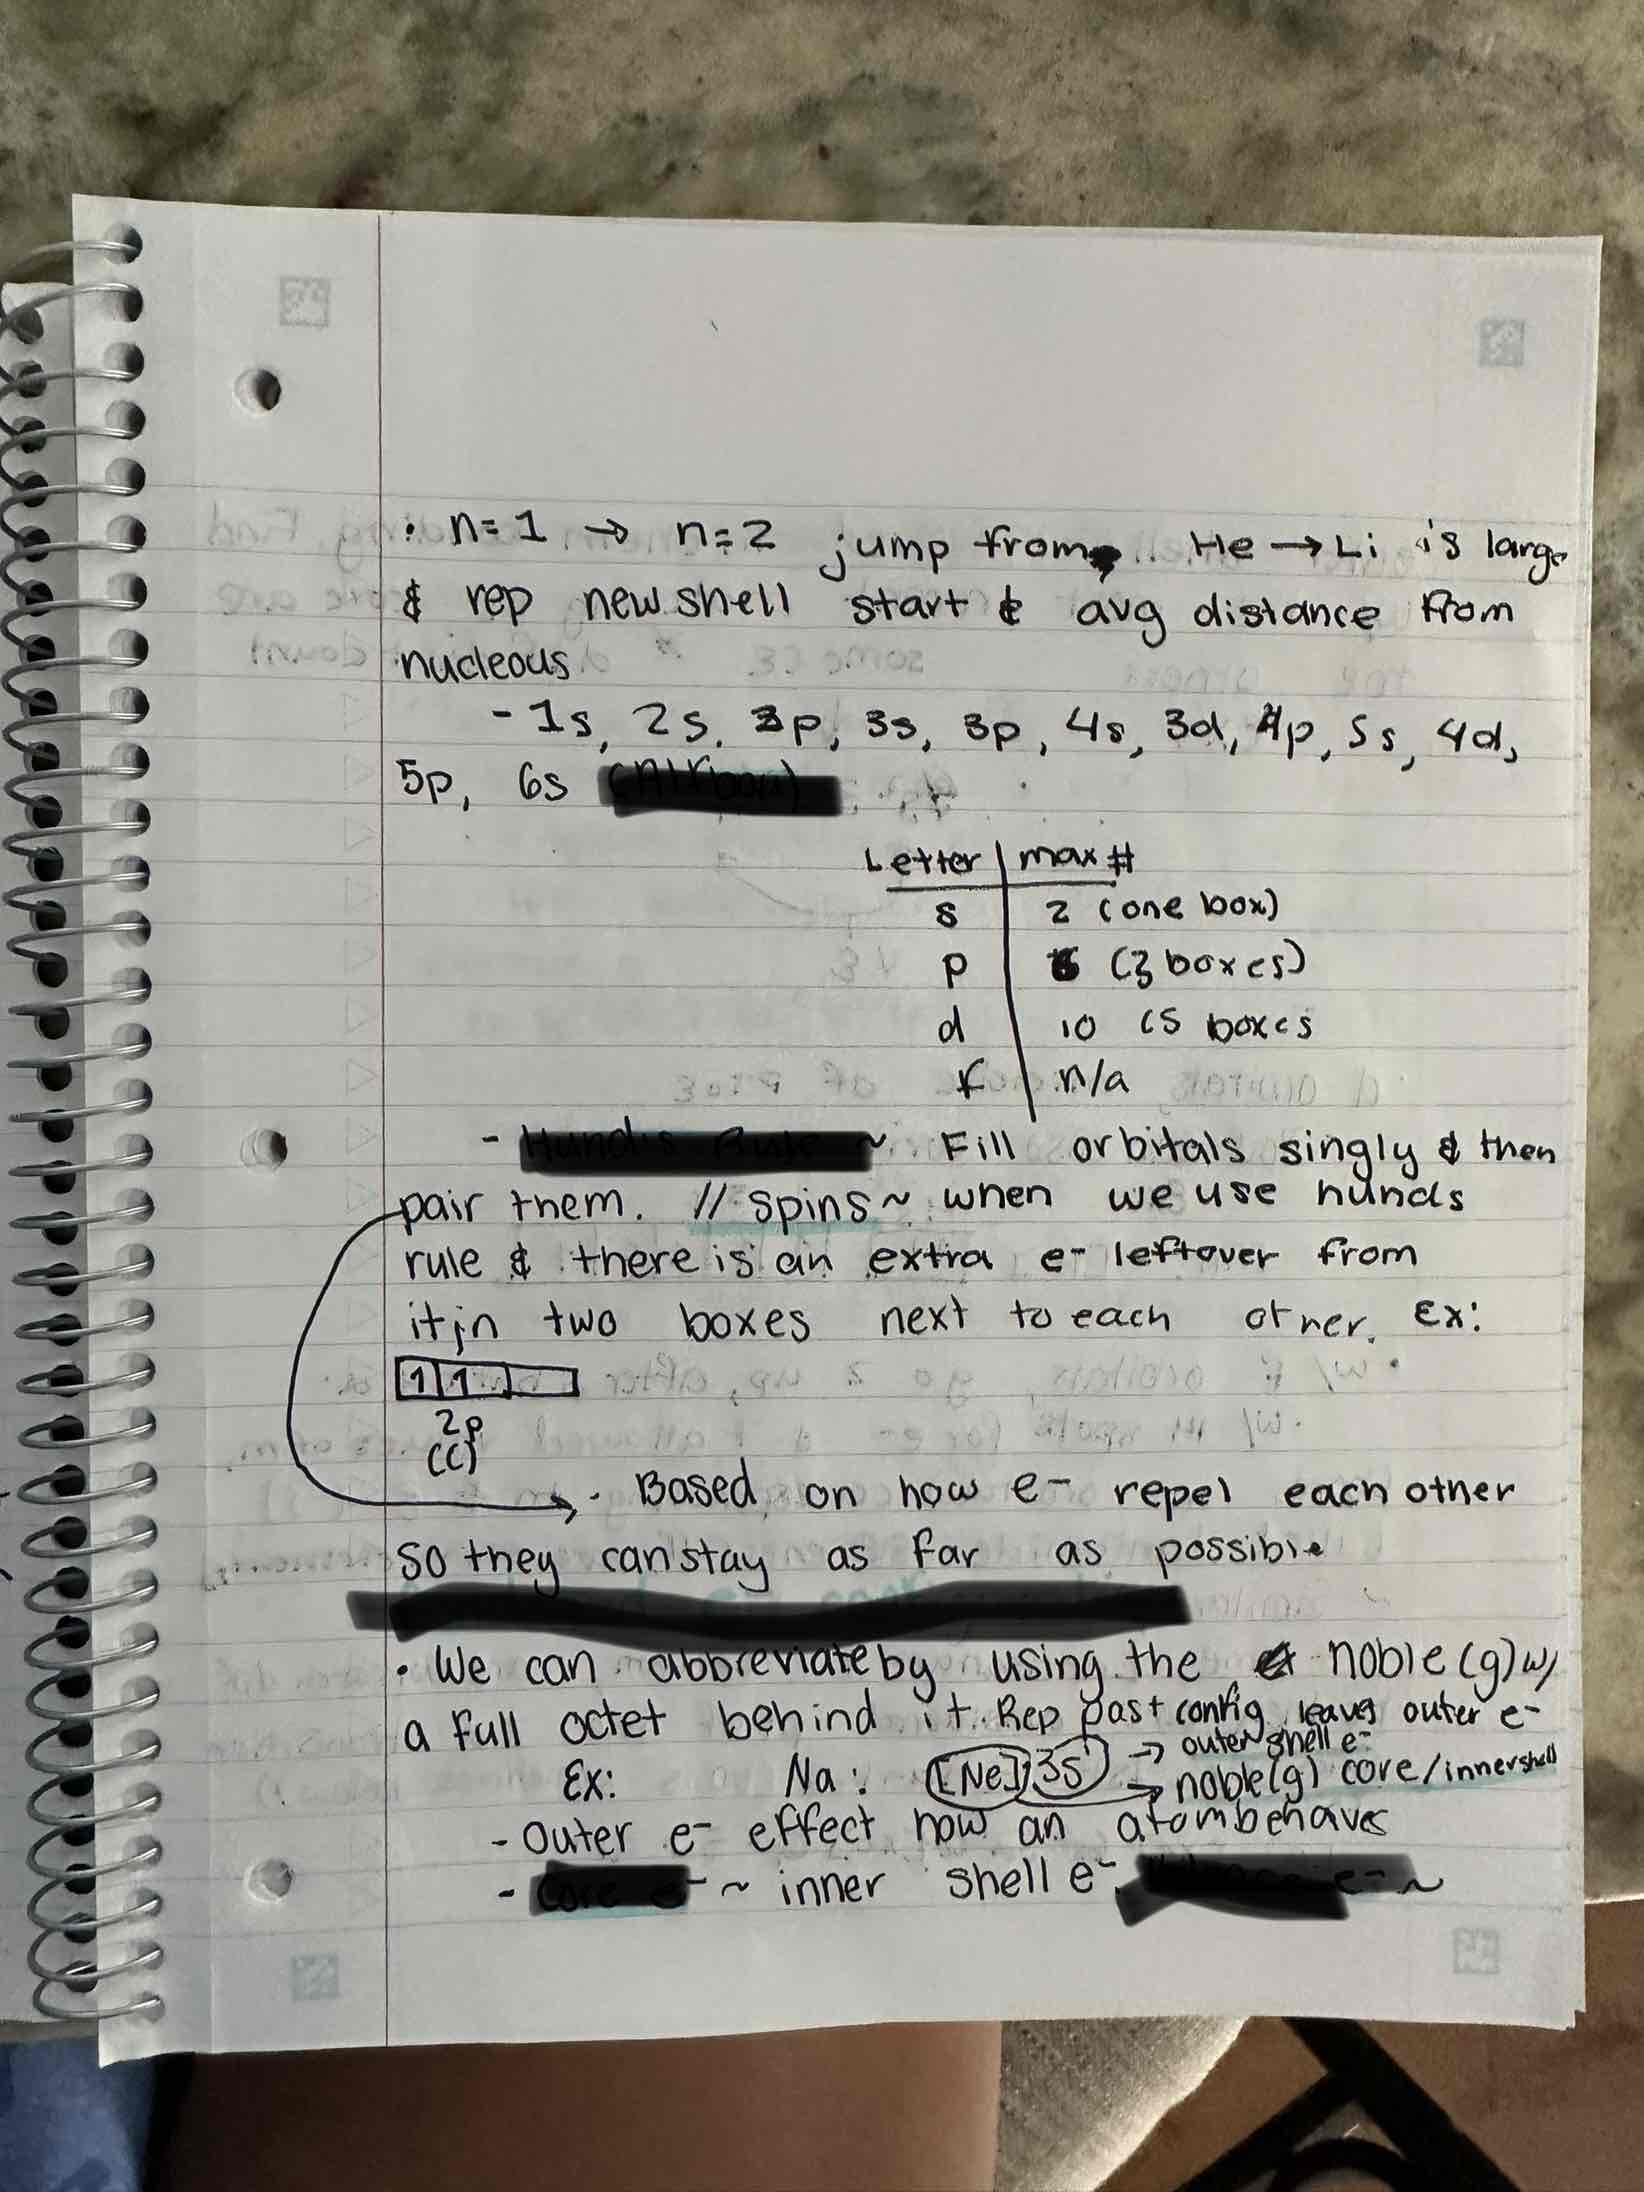 · n=1 → n=2 jump from He → Li is large
& rep new shell start & avg distance from
nucleous
- 1s, 2s, 2p, 3s, 3p, 4s, 3d, 4p, 5s, 4d,
5p, 6s
Letter | max #
s | 2 (one box)
p | 6 (3 boxes)
d | 10 (5 boxes
f | n/a
- ~ Fill orbitals singly & then
pair them. // spins ~ when we use hunds
rule & there is an extra e- leftover from
it in two boxes next to each other. Ex:
1 1
2p
(C)
→ · Based on how e- repel each other
so they can stay as far as possible
· We can abbreviate by using the noble (g) w/
a full octet behind it. Rep past config, leaves outer e-
→ outer shell e-
Ex: Na: [Ne] 3s¹ → noble(g) core/innershell
- Outer e- effect how an atom behaves
- ~ inner shell e-, e- ~